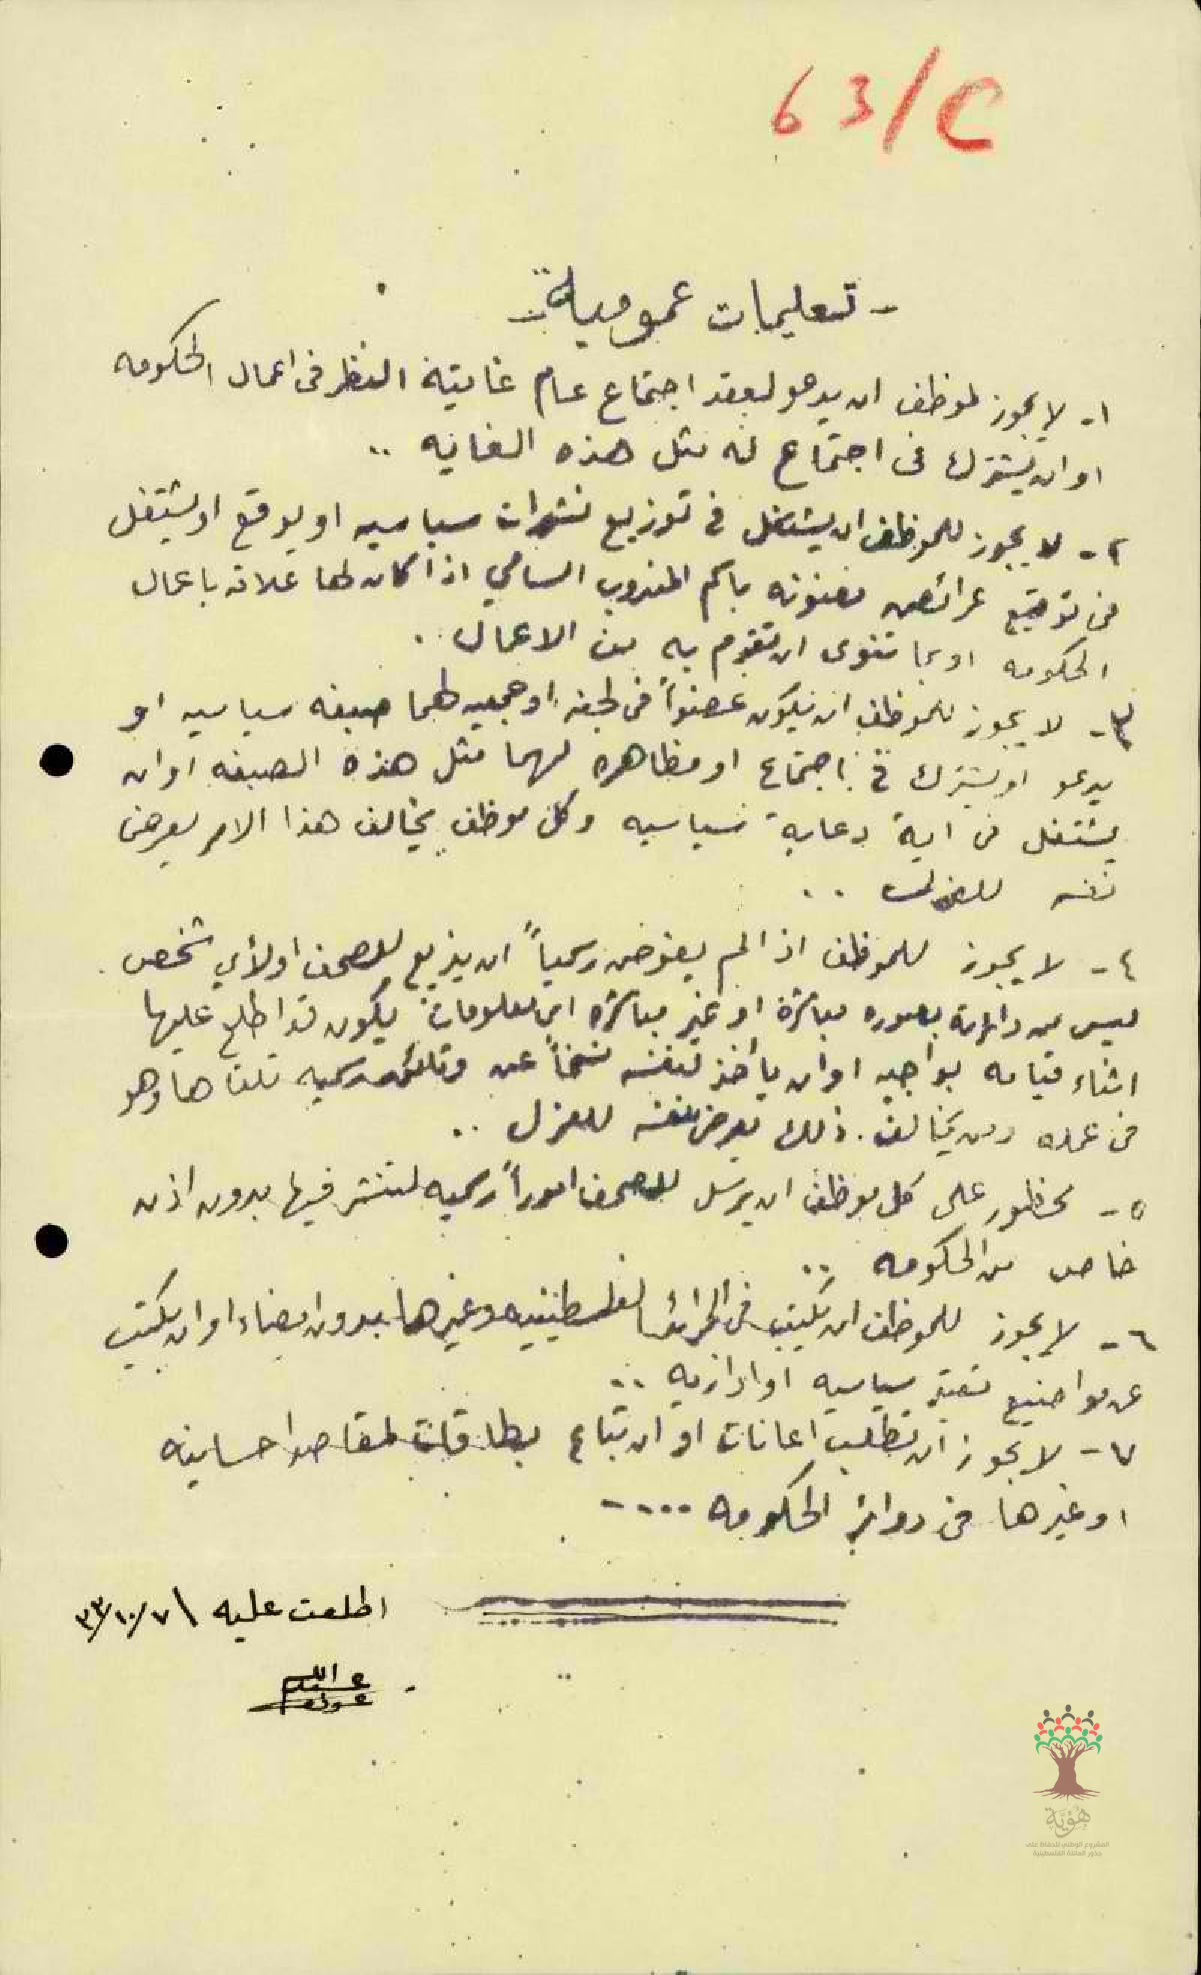 63/C
- تعليمات عمومية -
١- لا يجوز لموظف ان يدعو لعقد اجتماع عام غايته النظر فى اعمال الحكومه
او ان يشترك فى اجتماع له مثل هذه الغايه ..
٢- لا يجوز للموظف ان يشتغل فى توزيع نشرات سياسيه او يوقع او يشتغل
فى توقيع عرائض معنونه باسم المندوب السامي اذا كان لها علاقه باعمال
الحكومه او بما تنوى ان تقوم به من الاعمال ..
٣- لا يجوز للموظف ان يكون عضواً فى لجنه او جمعيه لهما صبغه سياسيه او
يدعو او يشترك في اجتماع او مظاهره لهما مثل هذه الصبغه او ان
يشتغل فى اية دعاية سياسيه وكل موظف يخالف هذا الامر يعرض
نفسه للعزل ..
٤- لا يجوز للموظف اذا لم يفوض رسمياً ان يذيع للصحف او لأي شخص
ليس من دائرته بصوره مباشرة او غير مباشره اى معلومات يكون قد اطلع عليها
اثناء قيامه بواجبه او ان يأخذ لنفسه نسخاً عن وثائق رسميه تلقاها وهو
فى عمله ومن يخالف ذلك يعرض نفسه للعزل ..
٥- محظور على كل موظف ان يرسل للصحف اموراً رسميه لتنشر فيها بدون اذن
خاص من الحكومه ..
٦- لا يجوز للموظف ان يكتب فى الجرائد الفلسطينيه وغيرها بدون امضاء او ان يكتب
عن مواضيع سياسيه او اداريه ..
٧- لا يجوز ان تطلب اعانات او ان تباع بطاقات لمقاصد احسانيه
او غيرها فى دوائر الحكومه ....
اطلعت عليه ٧/١٠/٣٣
عبد الله
هُوِيَّة
المشروع الوطني للحفاظ على
جذور العائلة الفلسطينية